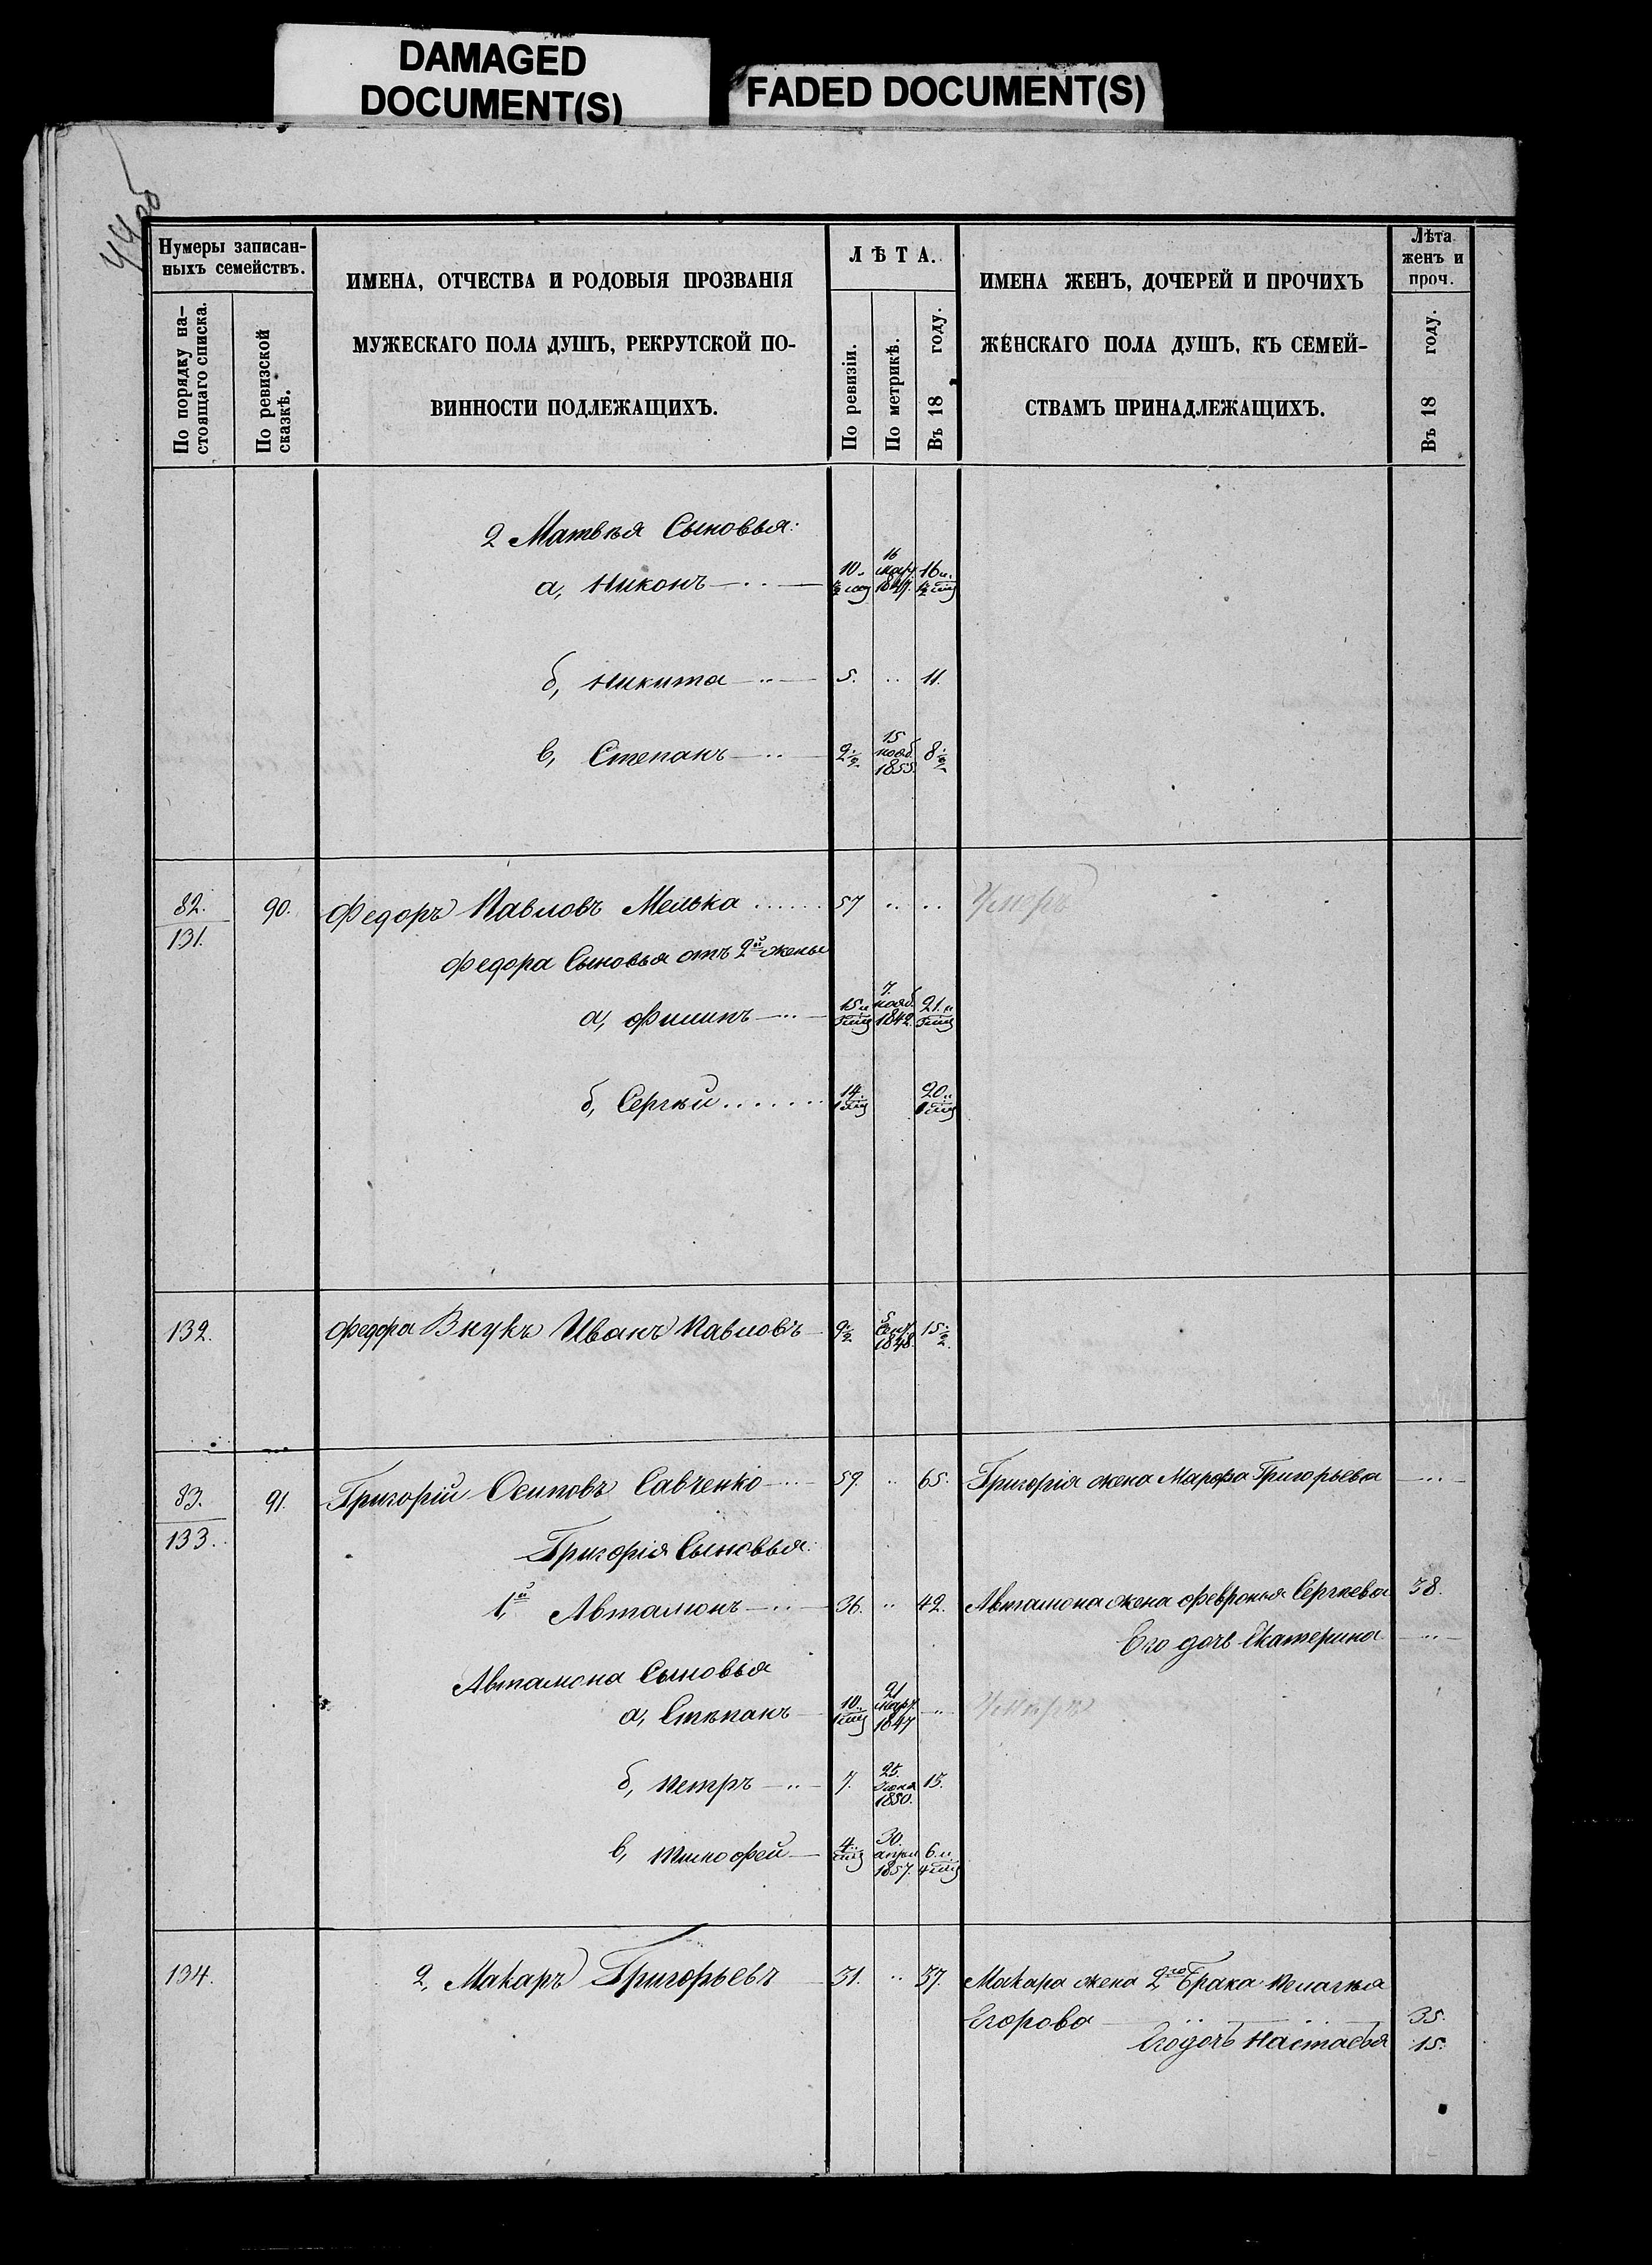 DAMAGED
DOCUMENT(S)
FADED DOCUMENT(S)
44об
Нумеры записан-
ныхъ семействъ.
По порядку на-
стоящаго списка.
По ревизской
сказкѣ.
ИМЕНА, ОТЧЕСТВА И РОДОВЫЯ ПРОЗВАНІЯ
МУЖЕСКАГО ПОЛА ДУШЪ, РЕКРУТСКОЙ ПО-
ВИННОСТИ ПОДЛЕЖАЩИХЪ.
ЛѢТА.
По ревизіи.
По метрикѣ.
Въ 18 году.
ИМЕНА ЖЕНЪ, ДОЧЕРЕЙ И ПРОЧИХЪ
ЖЕНСКАГО ПОЛА ДУШЪ, КЪ СЕМЕЙ-
СТВАМЪ ПРИНАДЛЕЖАЩИХЪ.
Лѣта
женъ и
проч.
Въ 18 году.
2 Матвѣя Сыновья:
а, Никонъ 10 16 мар. 1847. 16
б, Никита 5. 11.
в, Степанъ 2 1/2 15 нояб. 1855. 8 1/2
82. 90. Федоръ Павловъ Мелька 57 Умеръ
131.
Федора Сыновья отъ 2й жены
а, Филипъ 15 7. нояб. 1842. 21
б, Сергѣй 14 20
132. Федора Внукъ Иванъ Павловъ 9 1/2 5 Сент. 1848. 15 1/2
83. 91. Григорій Осиповъ Савченко 59. 65. Григорія жена Марфа Григорьева
133.
Григорія Сыновья:
1й Автамонъ 36. 42. Автамона жена Февронья Сергѣева 38.
Его дочь Екатерина
Автамона Сыновья
а, Степанъ 10 21 март. 1847 Умеръ
б, Петръ 7. 25. Іюня 1850. 13.
в, Тимофей 4 30. апрѣл 1857. 6
134. 2, Макаръ Григорьевъ 31. 37. Макара жена 2го Брака Пелагѣя
Егорова 35.
Его дочь Настасья 15.